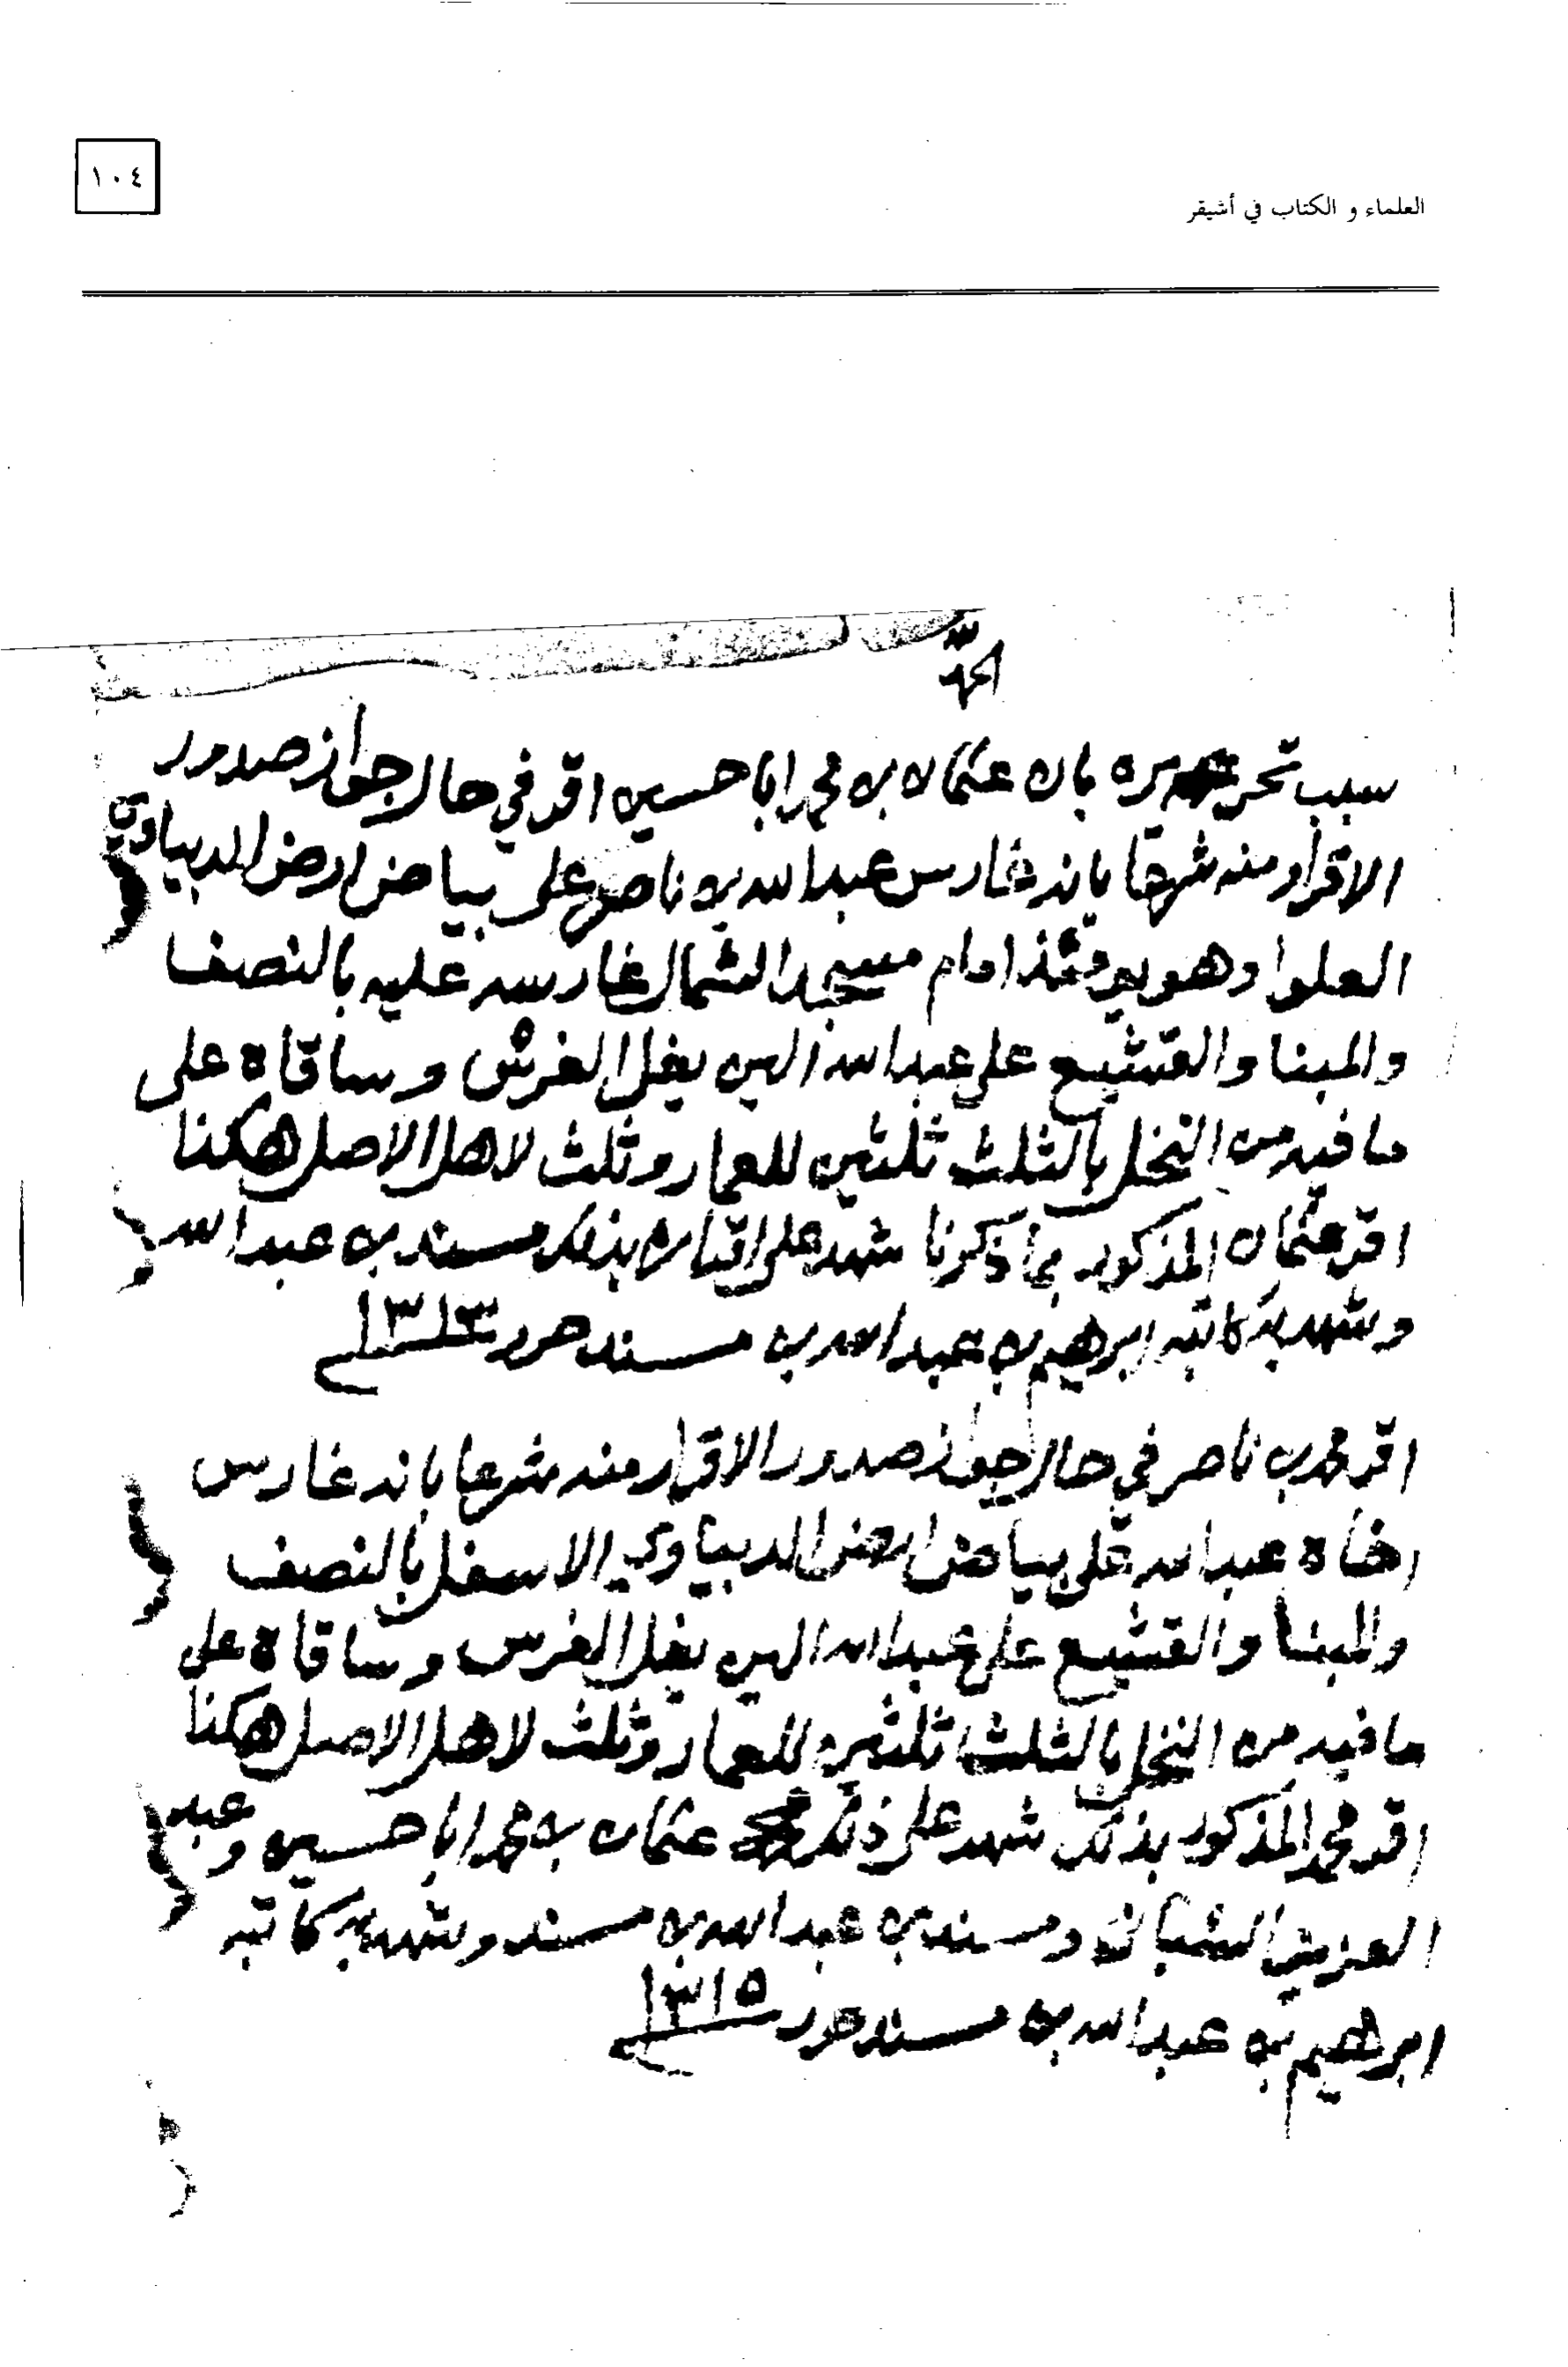 ١٠٤
العلماء و الكتاب في أشيقر
الحمد لله
سبب تحريره بان عثمان بن محمد ابا حسين اقر في حال جواز صدور
الاقرار منه شرعا بانه غارس عبدالله بن ناصر على بياض ارض الدبياوي
العلوا وهو يومئذ امام مسجد الشمال غارسه عليه بالنصف
والمبنا والقشيع على عبدالله الين يغل الغرس وساقاه على
ما فيه من النخل بالثلث ثلثين للعمار وثلث لاهل الاصل هكذا
اقر عثمان المذكور بما ذكرنا شهد على اقراره بذلك مسند بن عبدالله
وشهد به كاتبه ابرهيم بن عبدالله بن مسند حرر ١٣١٣
اقر محمد بن ناصر في حال جواز صدور الاقرار منه شرعا بانه غارس
اخاه عبدالله على بياض ارض الدبياوي الاسفل بالنصف
والمبنا والقشيع على عبدالله الين يغل الغرس وساقاه على
ما فيه من النخل بالثلث ثلثين للعمار وثلث لاهل الاصل هكذا
اقر محمد المذكور بذلك شهد على ذلك عثمان بن محمد ابا حسين وعبد
العزيز الشبان ومسند بن عبدالله بن مسند وشهد به كاتبه
ابرهيم بن عبدالله بن مسند حرر ١٣١٥